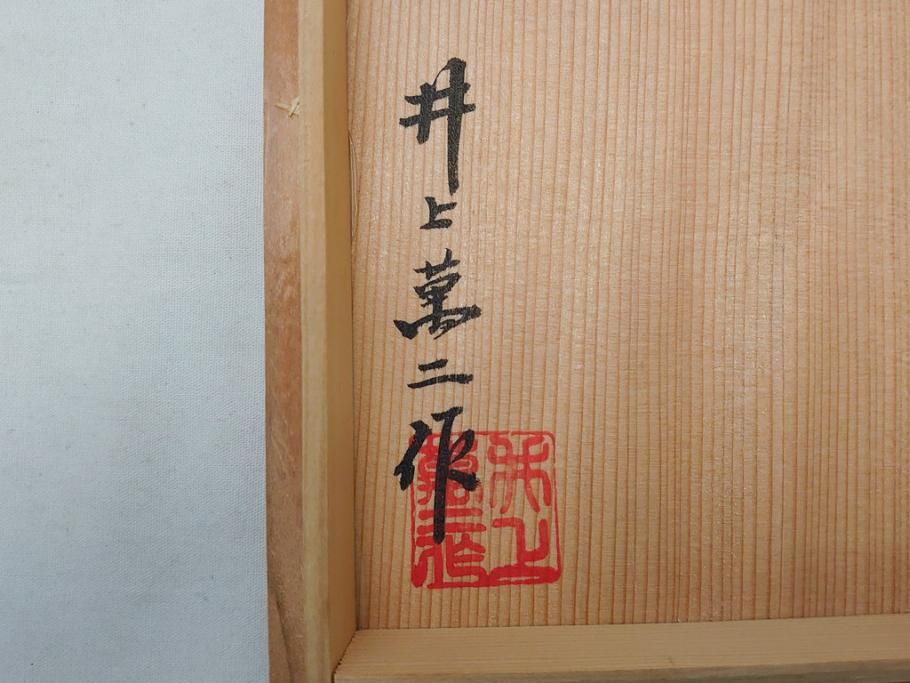 井上萬二作
井上
萬二作